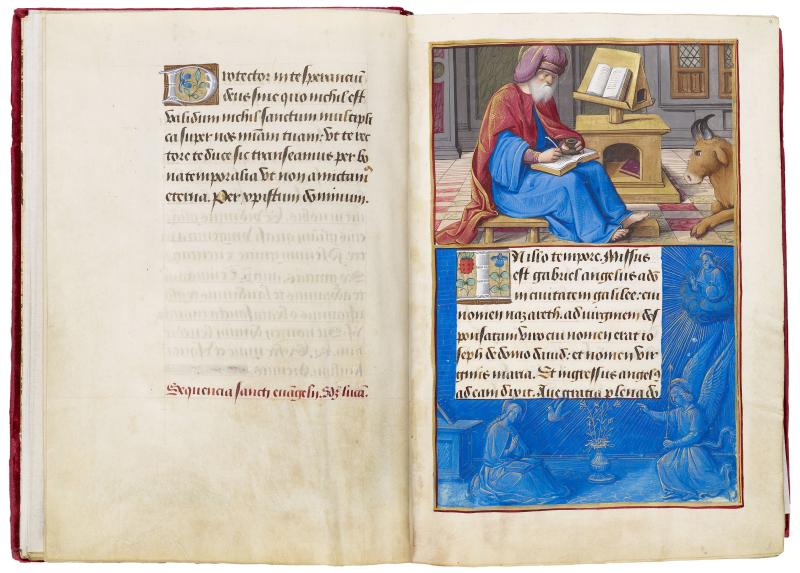 Protector in te speranciũ
deus sine quo nichil est
validum nichil sanctum multipli
ca super nos miam̃ tuam: vt te rec
tore te duce sic transeamus per bo
na temporalia vt non amictamꝰ
eterna. Per xpistum dominum.
Sequencia sancti euãgelii. Sʒ lucã.
IN illo tempore. Missus
est gabriel angelus a dõ
in ciuitatem galilee: cui
nomen nazareth. ad uirginem des
ponsatam viro cui nomen erat io
seph de domo dauid: et nomen vir
ginis maria. Et ingressus angelꝰ
ad eam dixit. Aue gratia plena dõ